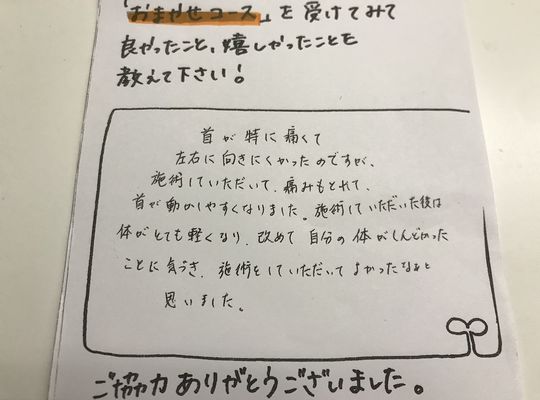 「おまかせコース」を受けてみて
良かったこと、嬉しかったことを
教えて下さい!
首が特に痛くて
左右に向きにくかったのですが、
施術していただいて、痛みもとれて、
首が動かしやすくなりました。施術していただいた後は
体がとても軽くなり、改めて自分の体がしんどかった
ことに気づき、施術をしていただいてよかったなぁと
思いました。
ご協力ありがとうございました。